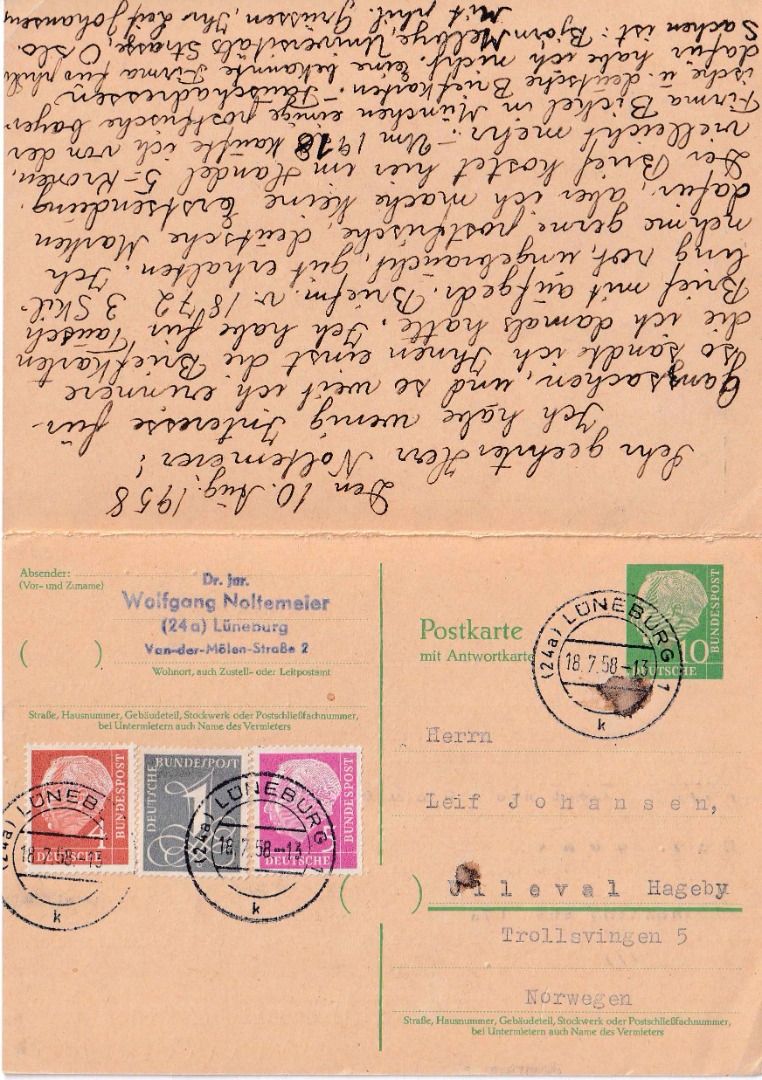 Den 10. Aug. 1958
Sehr geehrter Herr Noltemeier!
Ich habe wenig Interesse für
Ganzsachen, und so weit ich erinnere
so sandte ich Ihnen einst die Briefkarten
die ich damals hatte. Ich habe für Tausch
Brief mit aufgedr. Briefm. v. 1872 3 Skil-
ling rot, ungebraucht, gut erhalten. Ich
nehme gerne postfrische, deutsche Marken
dafür, aber ich mache keine Erstsendung.
Der Brief kostet hier im Handel 5-Kronen,
vielleicht mehr. - Um 1918 kaufte ich von der
Firma Bickel in München einige postfrische bayer-
ische u. deutsche Briefkarten. - Tauschadressen
dafür habe ich nicht. Eine bekannte Firma für phil.
Sachen ist: Bjørn Melbye, Universitäts Strasze, Oslo.
Mit phil. Grüssen, Ihr Leif Johansen
Absender:
(Vor- und Zuname)
Dr. jur.
Wolfgang Noltemeier
(24a) Lüneburg
Van-der-Mölen-Straße 2
( )
Wohnort, auch Zustell- oder Leitpostamt
Straße, Hausnummer, Gebäudeteil, Stockwerk oder Postschließfachnummer,
bei Untermietern auch Name des Vermieters
DEUTSCHE BUNDESPOST
4
DEUTSCHE BUNDESPOST
1
DEUTSCHE BUNDESPOST
(24a) LÜNEB
18.7.58-13
k
(24a) LÜNEBURG 1
18.7.58-13
k
Postkarte
mit Antwortkarte
DEUTSCHE BUNDESPOST
10
(24a) LÜNEBURG 1
18.7.58-13
k
Herrn
Leif Johansen,
( )
Ulleval Hageby
Trollsvingen 5
Norwegen
Straße, Hausnummer, Gebäudeteil, Stockwerk oder Postschließfachnummer,
bei Untermietern auch Name des Vermieters